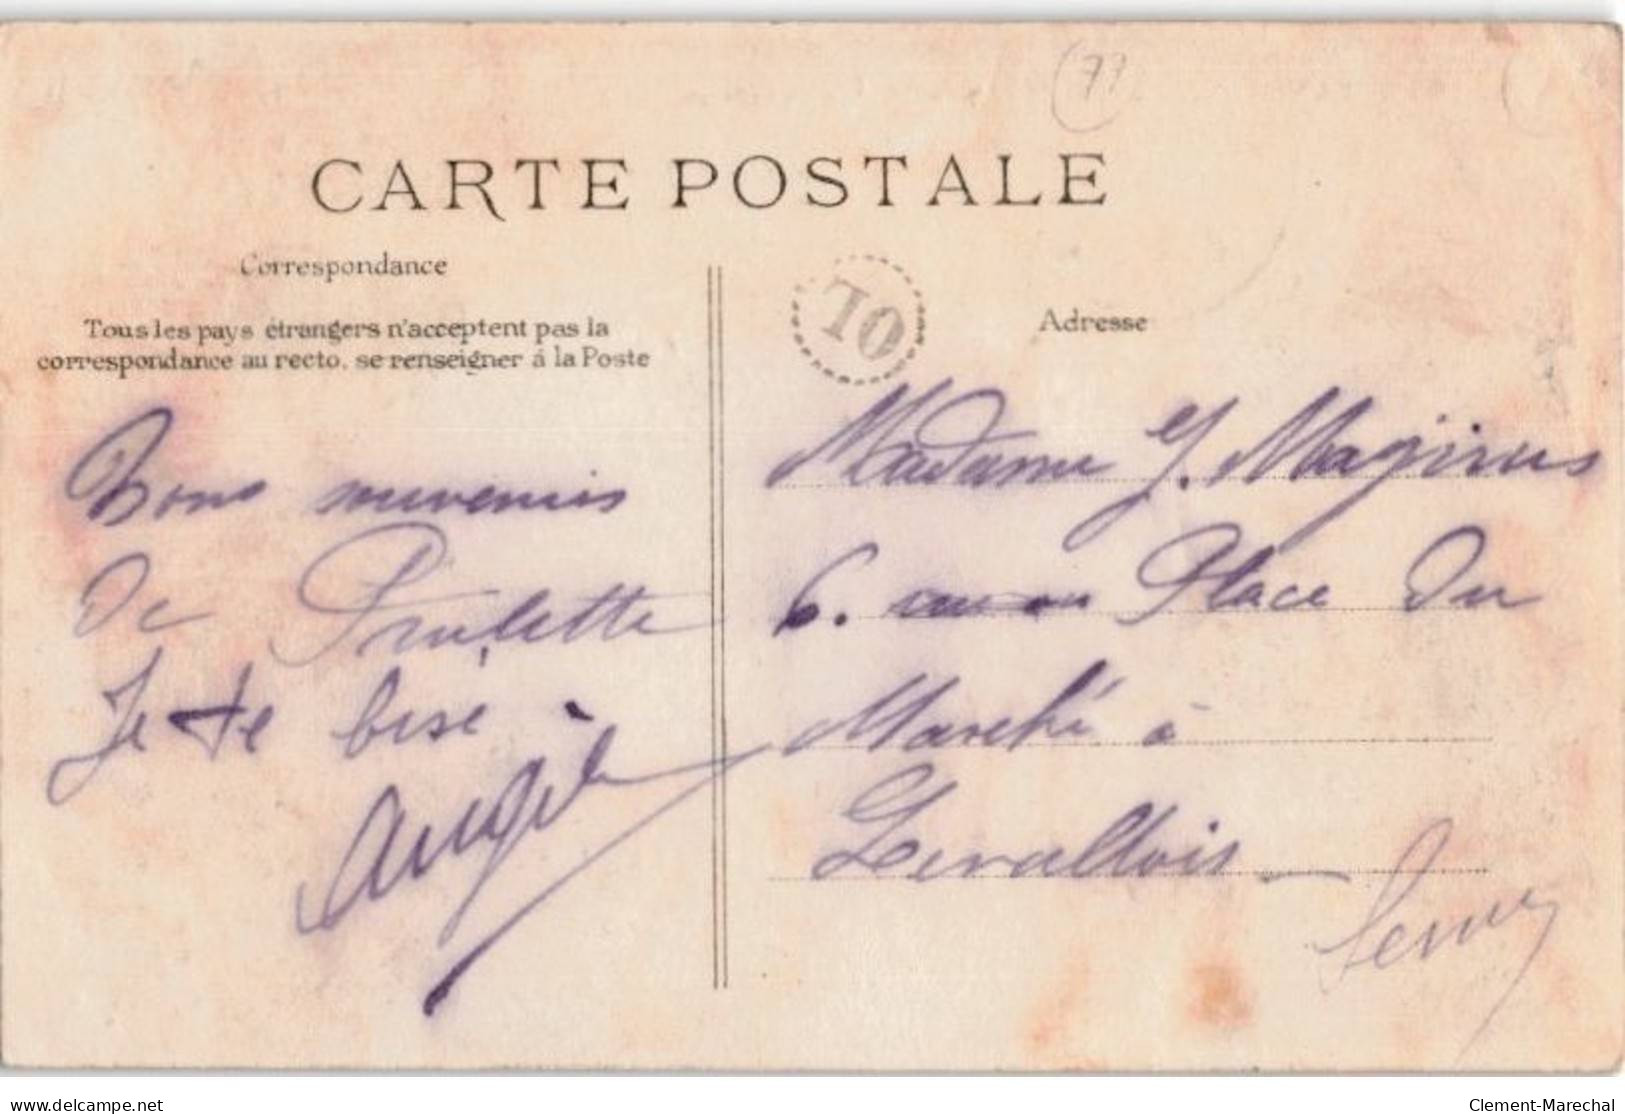 (77)
CARTE POSTALE
Correspondance
Tous les pays étrangers n'acceptent pas la
correspondance au recto, se renseigner á la Poste
Bons souvenirs
de Paulette
Je te bise
Angèle
TO
Adresse
Madame J. Magirus
6. Place du
Marché à
Levallois
www.delcampe.net
Clement-Marechal